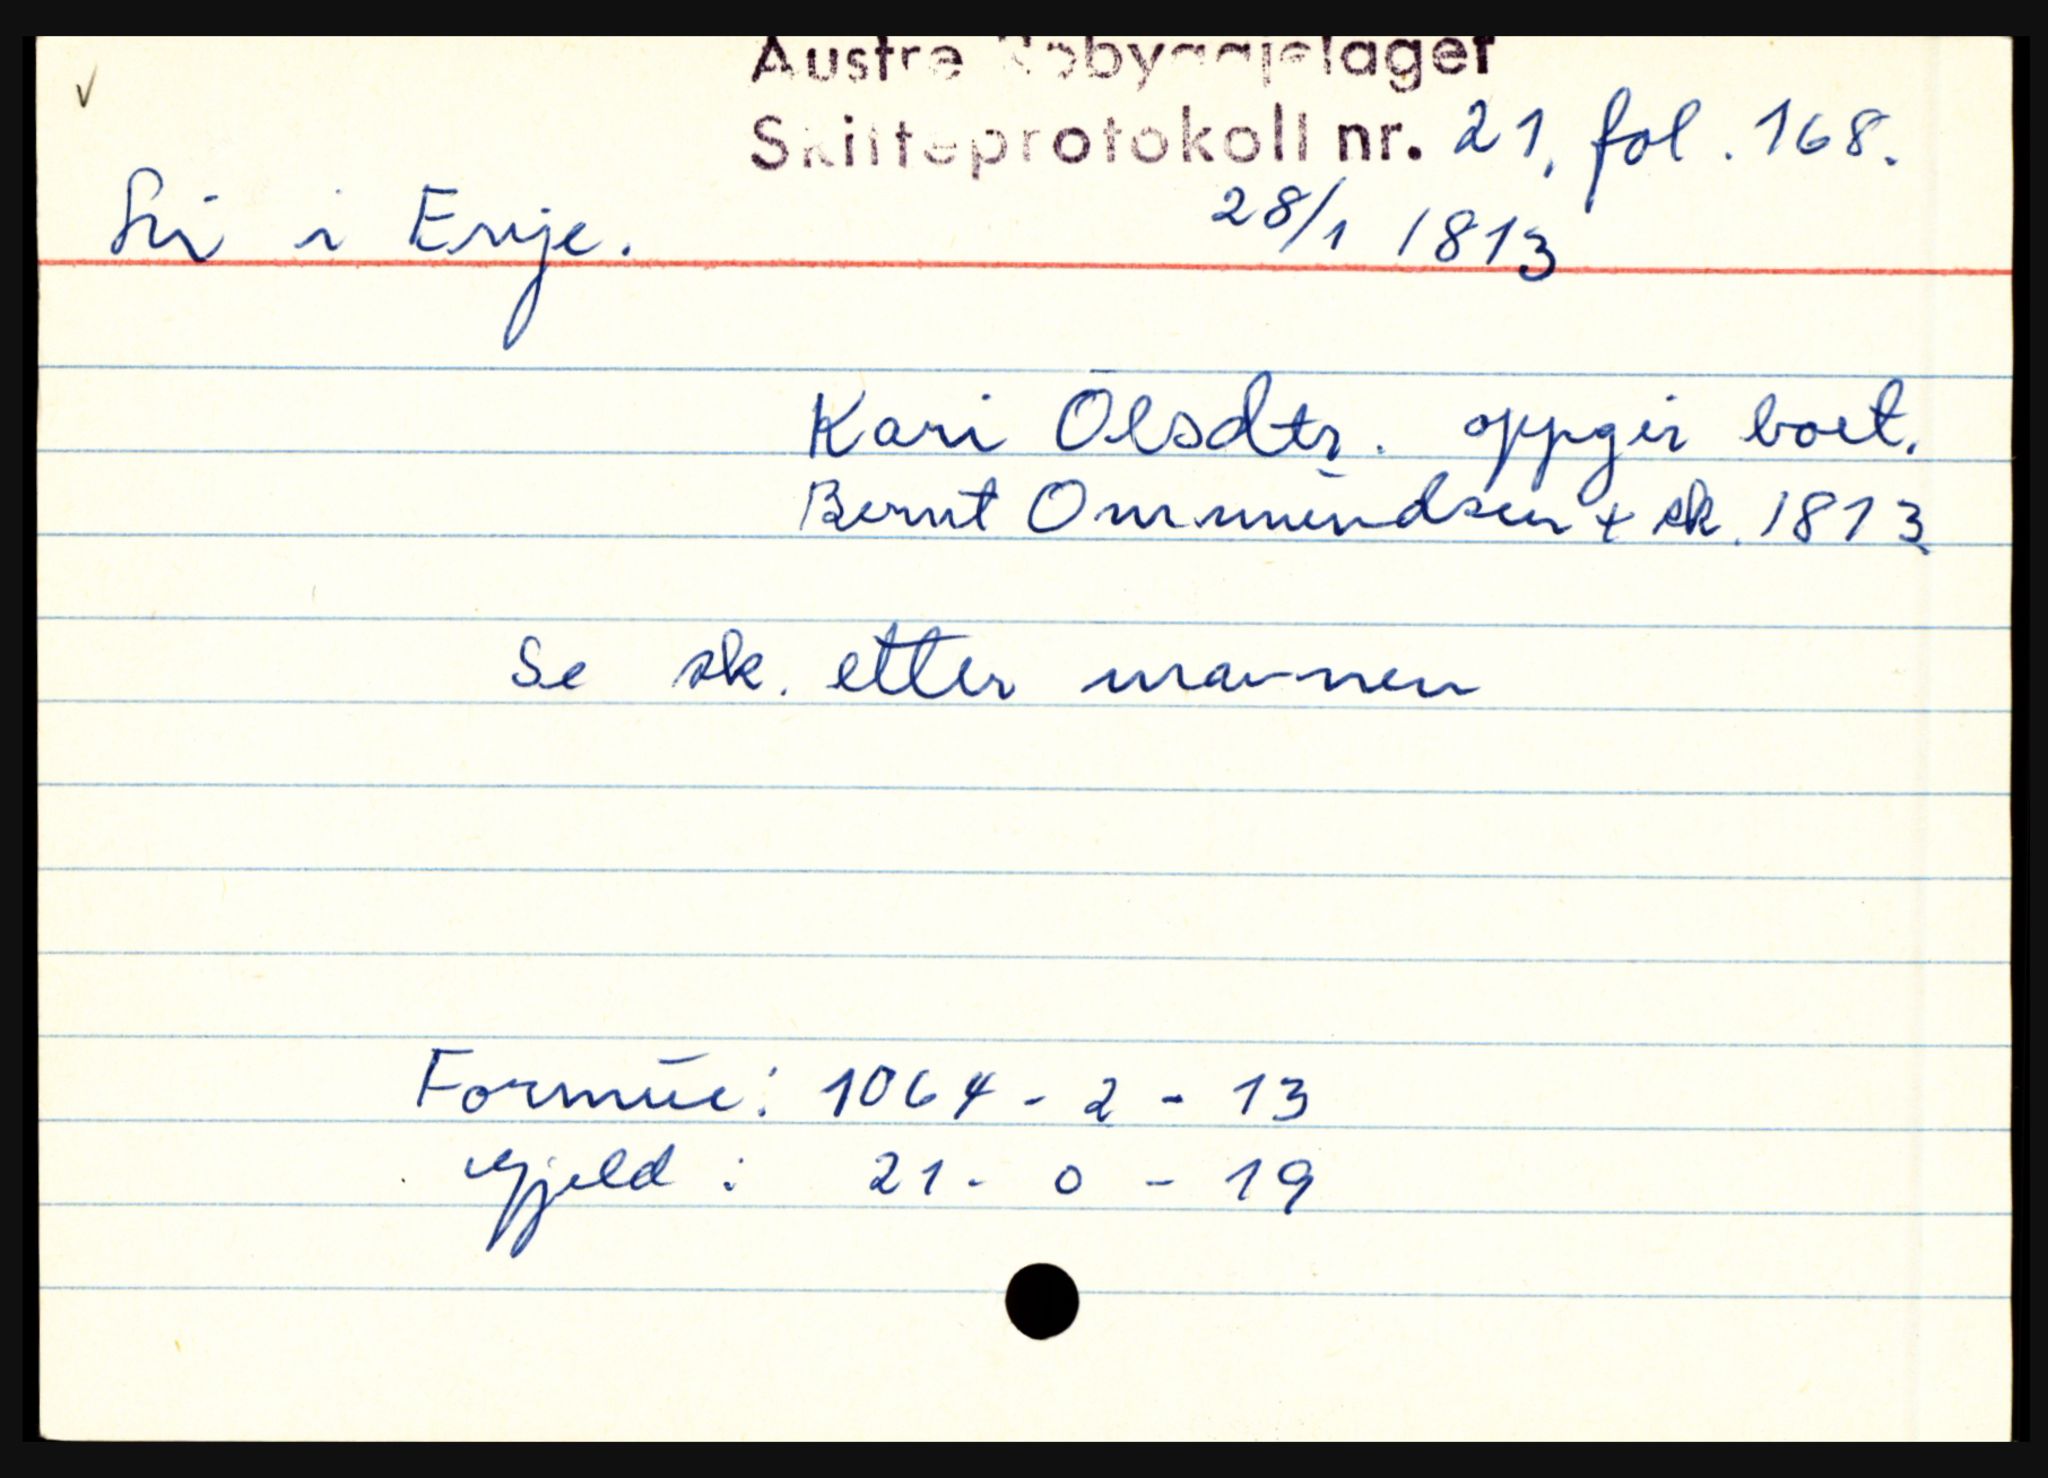 Austre Robyggjelaget
Skifteprotokoll nr. 21, fol. 168.
28/1 1813
i Evje.
Kari Olsdtr. oppgir boet.
Bernt Ommundsen + sk. 1813
Se sk. etter mannen
Formue: 1064 - 2 - 13
Gjeld: 21 - 0 - 19